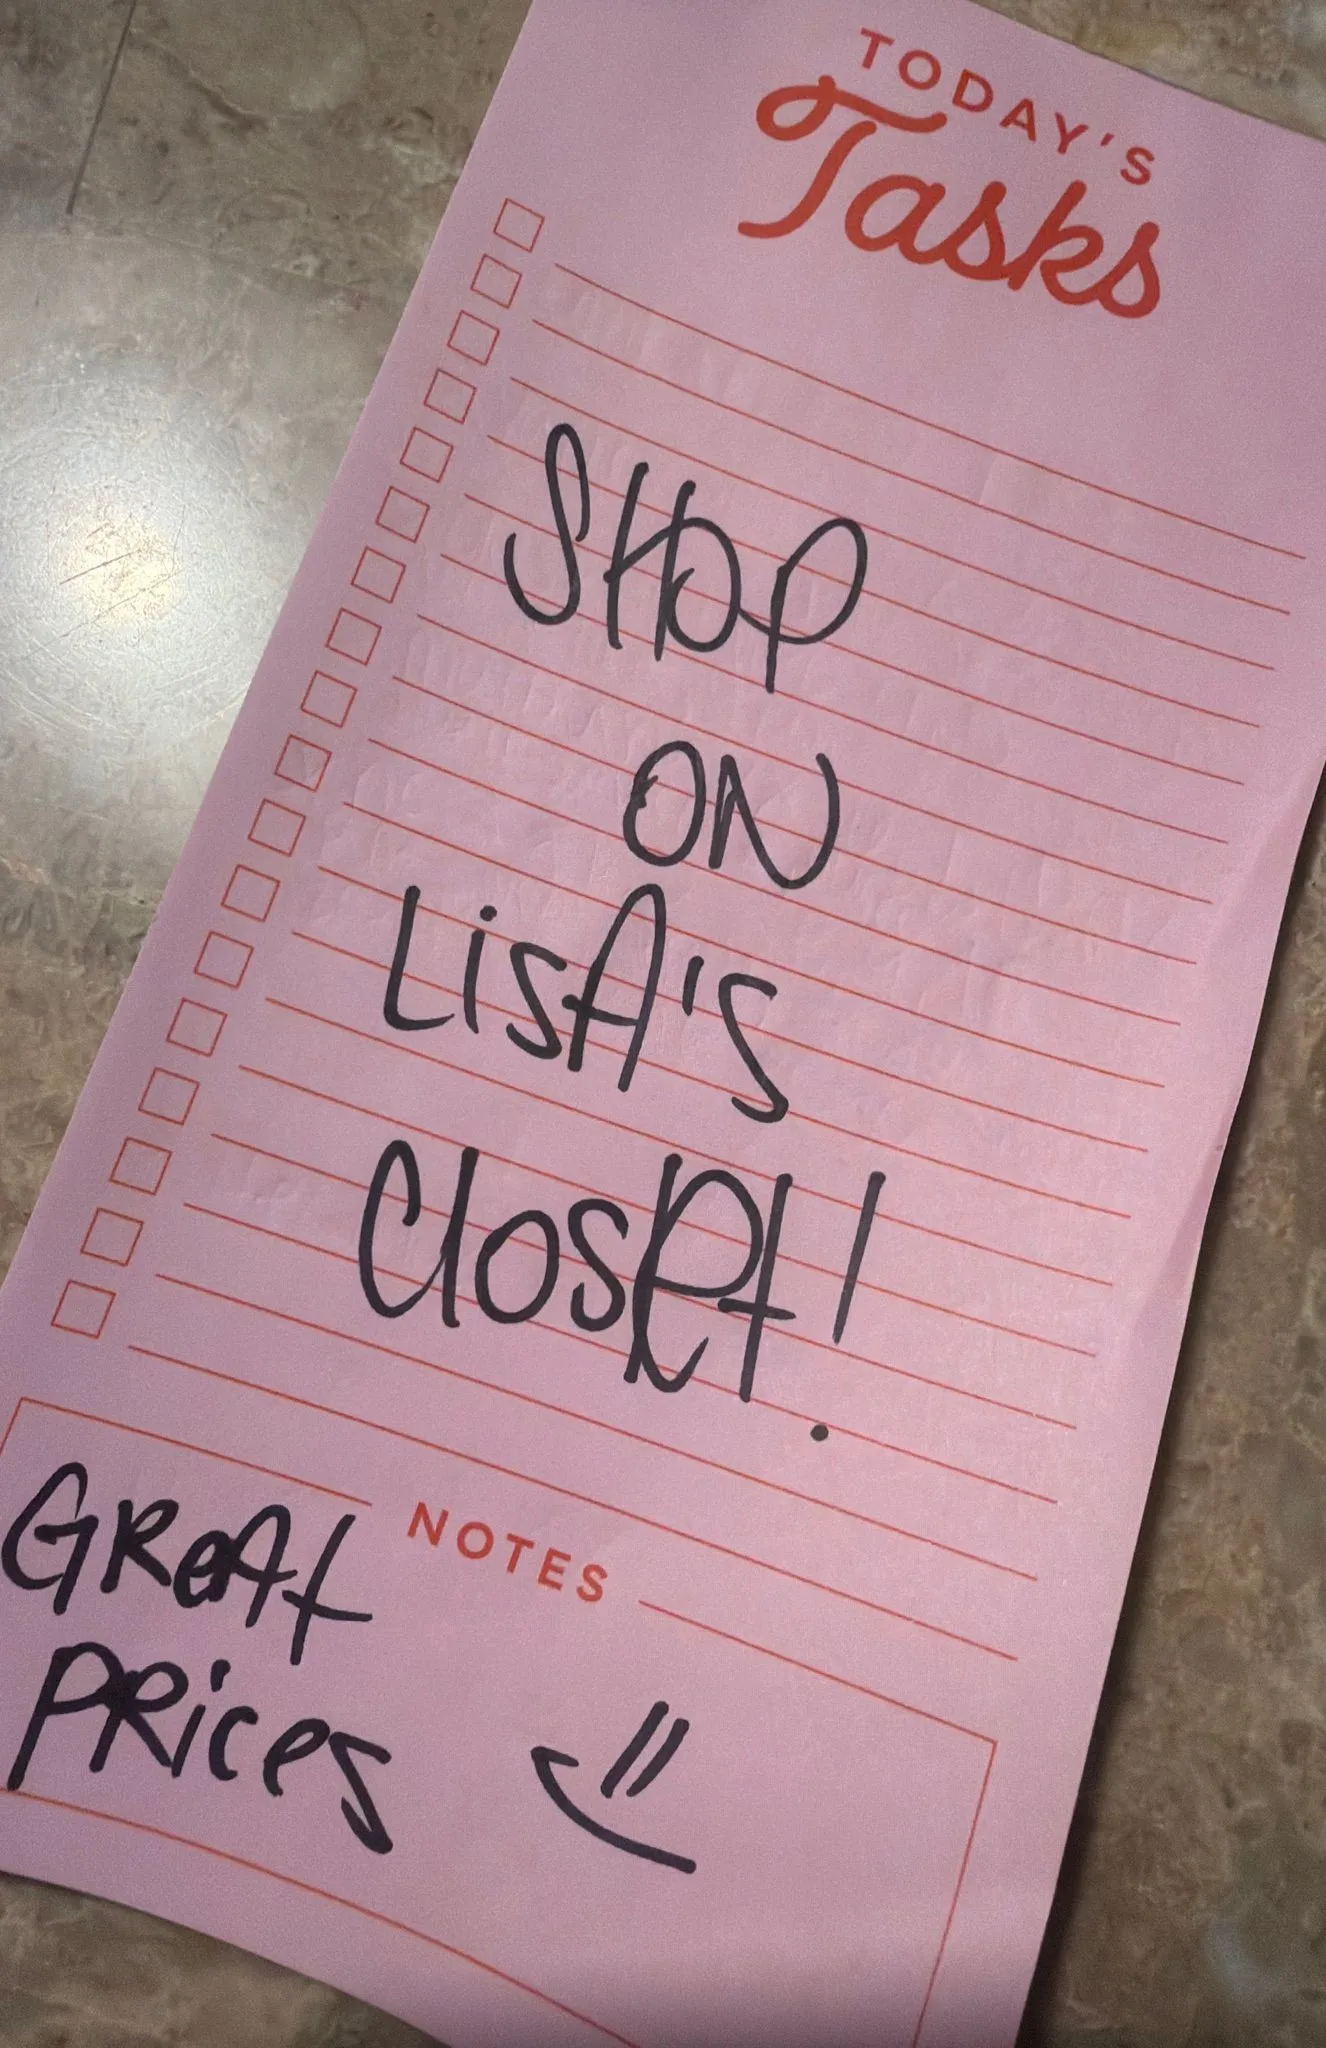 TODAY'S
Tasks
SHOP
ON
LiSA'S
CloSet!
NOTES
GReAt
PRices